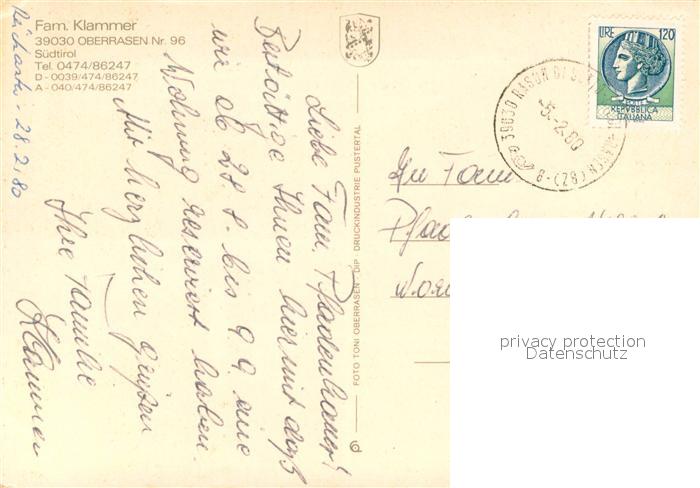 Fam. Klammer
39030 OBERRASEN Nr. 96
Südtirol
Tel. 0474/86247
D - 0039/474/86247
A - 040/474/86247
28.2.80
Liebe Fam. Pfadenhauer!
Bestättige Ihnen hiermit daß
wir ab 28. 8. bis 9. 9. eine
Wohnung reserviert haben.
Mit herzlichen Grüßen
Ihre Familie
Klammer
FOTO TONI OBERRASEN - DIP DRUCKINDUSTRIE PUSTERTAL
LIRE 120
REPVBBLICA
ITALIANA
39030 RASUN DI
-5.-2.80
B-(ZB)
An Fam
privacy protection
Datenschutz